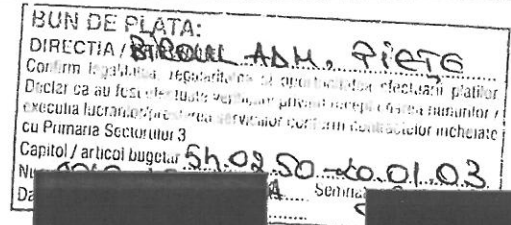 BUN DE PLATA:
DIRECTIA / BIROUL ADM. PIETE
Confirm legalitatea, regularitatea si oportunitatea efectuarii platilor
Declar ca au fost efectuate verificari privind receptionarea bunurilor /
executia lucrarilor/prestarea serviciilor conform contractelor incheiate
cu Primaria Sectorului 3
Capitol / articol bugetar 54.02.50-20.01.03
Semna
Da